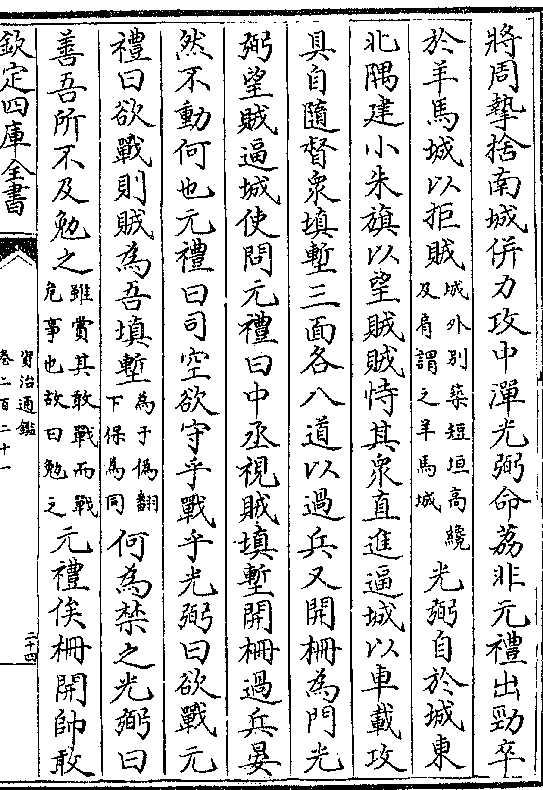 將周摯捨南城併力攻中潬光弼命荔非元禮出勁卒
於羊馬城以拒賊城外別築短垣高纔及肩謂之羊馬城光弼自於城東
北隅建小朱旗以望賊賊恃其衆直進逼城以車載攻
具自隨督衆填塹三面各八道以過兵又開柵為門光
弼望賊逼城使問元禮曰中丞視賊填塹開柵過兵晏
然不動何也元禮曰司空欲守乎戰乎光弼曰欲戰元
禮曰欲戰則賊為吾填塹為于偽翻下保為同何為禁之光弼曰
善吾所不及勉之雖賞其敢戰而戰危事也故曰勉之元禮俟柵開帥敢
欽定四庫全書
資治通鑑
卷二百二十一
二十四